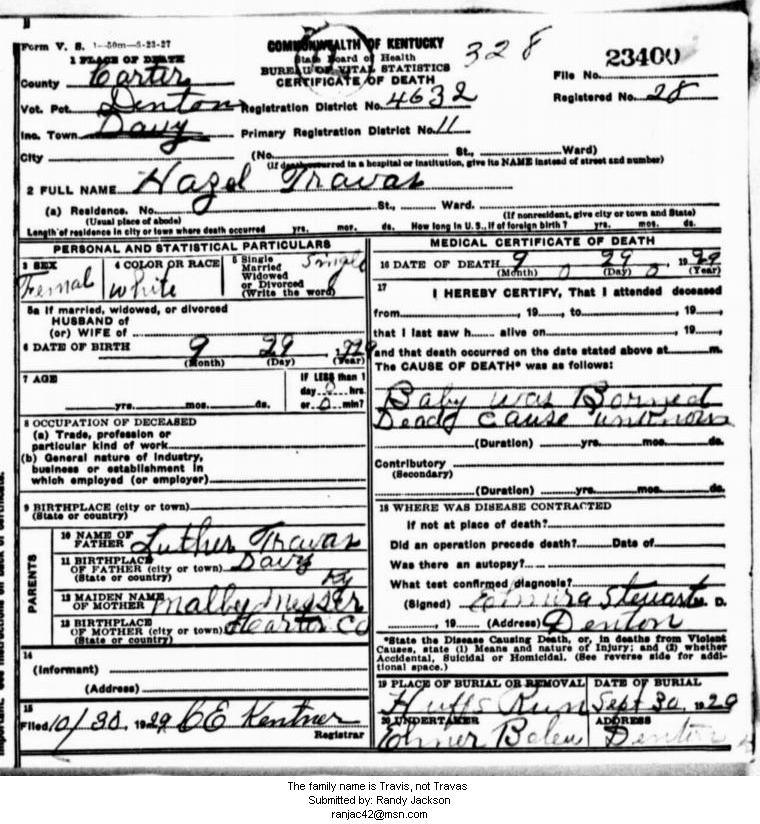 Form V. S. 1-50m-5-23-27
COMMONWEALTH OF KENTUCKY
State Board of Health
BUREAU OF VITAL STATISTICS
CERTIFICATE OF DEATH
328
23400
File No.
Registered No. 28
1 PLACE OF DEATH
County Carter
Vot. Pct. Denton Registration District No. 4632
Inc. Town Davy Primary Registration District No. 11
City (No. St., Ward)
(If death occurred in a hospital or institution, give its NAME instead of street and number)
2 FULL NAME Hazel Travas
(a) Residence. No. St., Ward.
(Usual place of abode) (If nonresident, give city or town and State)
Length of residence in city or town where death occurred yrs. mos. ds. How long in U. S., if of foreign birth? yrs. mos. ds.
PERSONAL AND STATISTICAL PARTICULARS
3 SEX 4 COLOR OR RACE 5 Single
Married
Widowed
or Divorced
(Write the word)
Femal white Single
5a If married, widowed, or divorced
HUSBAND of
(or) WIFE of
6 DATE OF BIRTH 9 29
(Month) (Day) (Year)
7 AGE
yrs. mos. ds.
IF LESS than 1
day 0 hrs.
or 0 min?
8 OCCUPATION OF DECEASED
(a) Trade, profession or
particular kind of work
(b) General nature of industry,
business or establishment in
which employed (or employer)
9 BIRTHPLACE (city or town)
(State or country)
PARENTS
10 NAME OF
FATHER Luther Travas
11 BIRTHPLACE
OF FATHER (city or town) Davy
(State or country) Ky
12 MAIDEN NAME
OF MOTHER Malby Messer
13 BIRTHPLACE
OF MOTHER (city or town) Carter Co
(State or country)
14
(Informant)
(Address)
15
Filed 10/30, 1929 CE Kentner
Registrar
MEDICAL CERTIFICATE OF DEATH
16 DATE OF DEATH 9 29 1929
(Month) (Day) (Year)
17
I HEREBY CERTIFY, That I attended deceased
from , 19 , to , 19 ,
that I last saw h alive on , 19 ,
and that death occurred on the date stated above at m.
The CAUSE OF DEATH* was as follows:
Baby was Borned
Dead cause unknown
(Duration) yrs. mos. ds.
Contributory
(Secondary)
(Duration) yrs. mos. ds.
18 WHERE WAS DISEASE CONTRACTED
If not at place of death?
Did an operation precede death? Date of
Was there an autopsy?
What test confirmed diagnosis?
(Signed) Elmira Stewart M. D.
, 19 (Address) Denton
*State the Disease Causing Death, or, in deaths from Violent
Causes, state (1) Means and nature of Injury; and (2) whether
Accidental, Suicidal or Homicidal. (See reverse side for addi-
tional space.)
19 PLACE OF BURIAL OR REMOVAL DATE OF BURIAL
Huffs Run Sept 30, 1929
20 UNDERTAKER ADDRESS
Elmer Denton
The family name is Travis, not Travas
Submitted by: Randy Jackson
ranjac42@msn.com